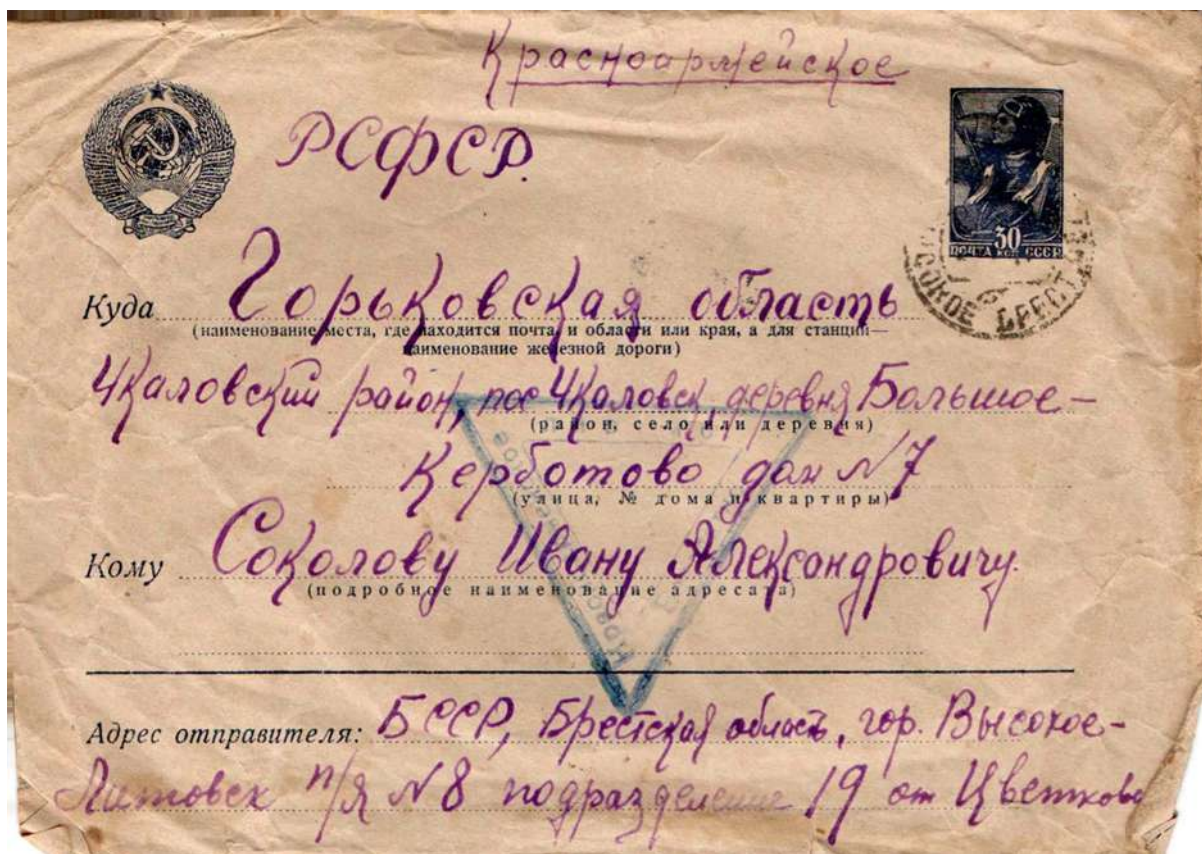 Красноармейское
РСФСР.
30
ПОЧТА КОП СССР
Куда Горьковская область
(наименование места, где находится почта, и области или края, а для станций—
наименование железной дороги)
Чкаловский район, пос Чкаловск, деревня Большое-
(район, село или деревня)
Керботово дом №7
(улица, № дома и квартиры)
Кому Соколову Ивану Александровичу.
(подробное наименование адресата)
Адрес отправителя: БССР, Брестская область, гор. Высокое-
Литовск п/я №8 подразделение 19 от Цветкова